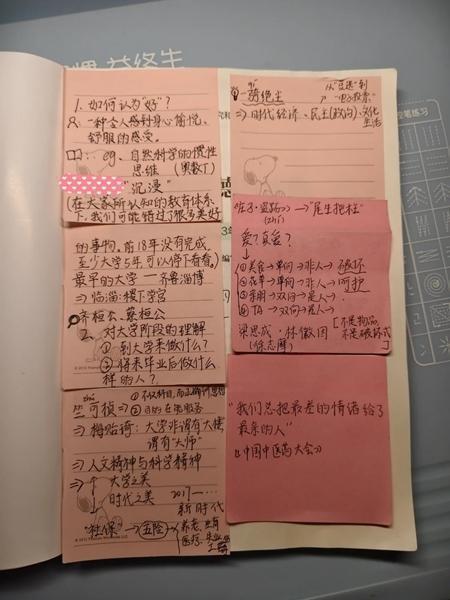 1. 如何认为"好"?
一种令人感到身心愉悦、
舒服的感受。
eg、自然科学的惯性
思维 (奥数丁)
"沉浸"
(在大家所认知的教育体系
下,我们可能错过了很多美好
的事物,前18年没有完成,
至少大学5年可以停下看看。)
最早的大学 — 齐鲁淄博
⇒ 临淄·稷下学宫
齐桓公、蔡桓公
2、对大学阶段的理解
① 到大学来做什么?
② 将来毕业后做什么
样的人?
zhú
竺可桢 ⇒
⇒ 梅贻琦: 大学非谓有大楼
谓有"大师"
⇒ 人文精神与科学精神
⇒ 大学之美
时代之美
2017—…
新时代
"社保" → 五险
养老、生育
医疗、失业
工伤
一骑绝尘
⇒ 时代经济、民主(政向)、文化
生活
→ "尾生抱柱"
爱? 真爱?
① 美食 → 单向 → 非人 → 破坏
② 花草 → 单向 → 非人 → 呵护
③ 亲朋 → 双向 → 是人 →
④ TA → 双向 → 是人 →
梁思成·林徽因
(徐志摩)
[不是物品,
不是破坏式]
"我们总把最差的情绪给了
最亲的人"
《中国中医药大会》